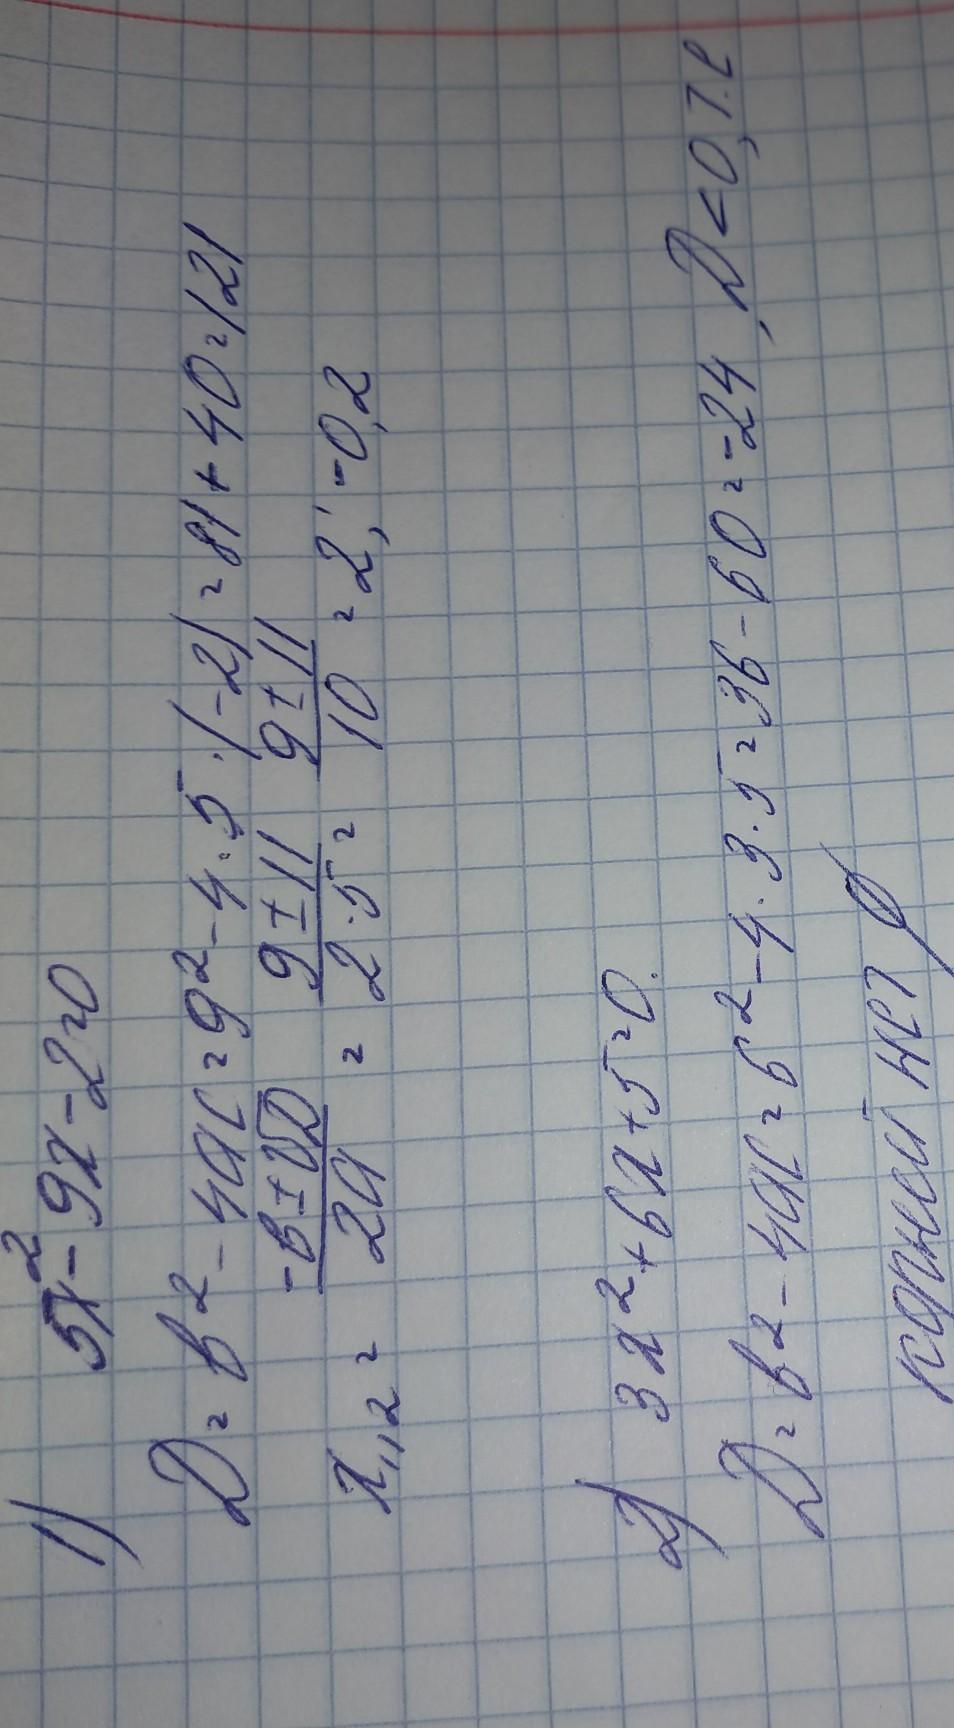 1) 5x² - 9x - 2 = 0
D = b² - 4ac = 9² - 4·5·(-2) = 81 + 40 = 121
x₁,₂ = (-b ± √D)/2a = (9 ± 11)/(2·5) = (9 ± 11)/10 = 2; -0,2
2) 3x² + 6x + 5 = 0.
D = b² - 4ac = 6² - 4·3·5 = 36 - 60 = -24, D < 0, т.е
корней нет